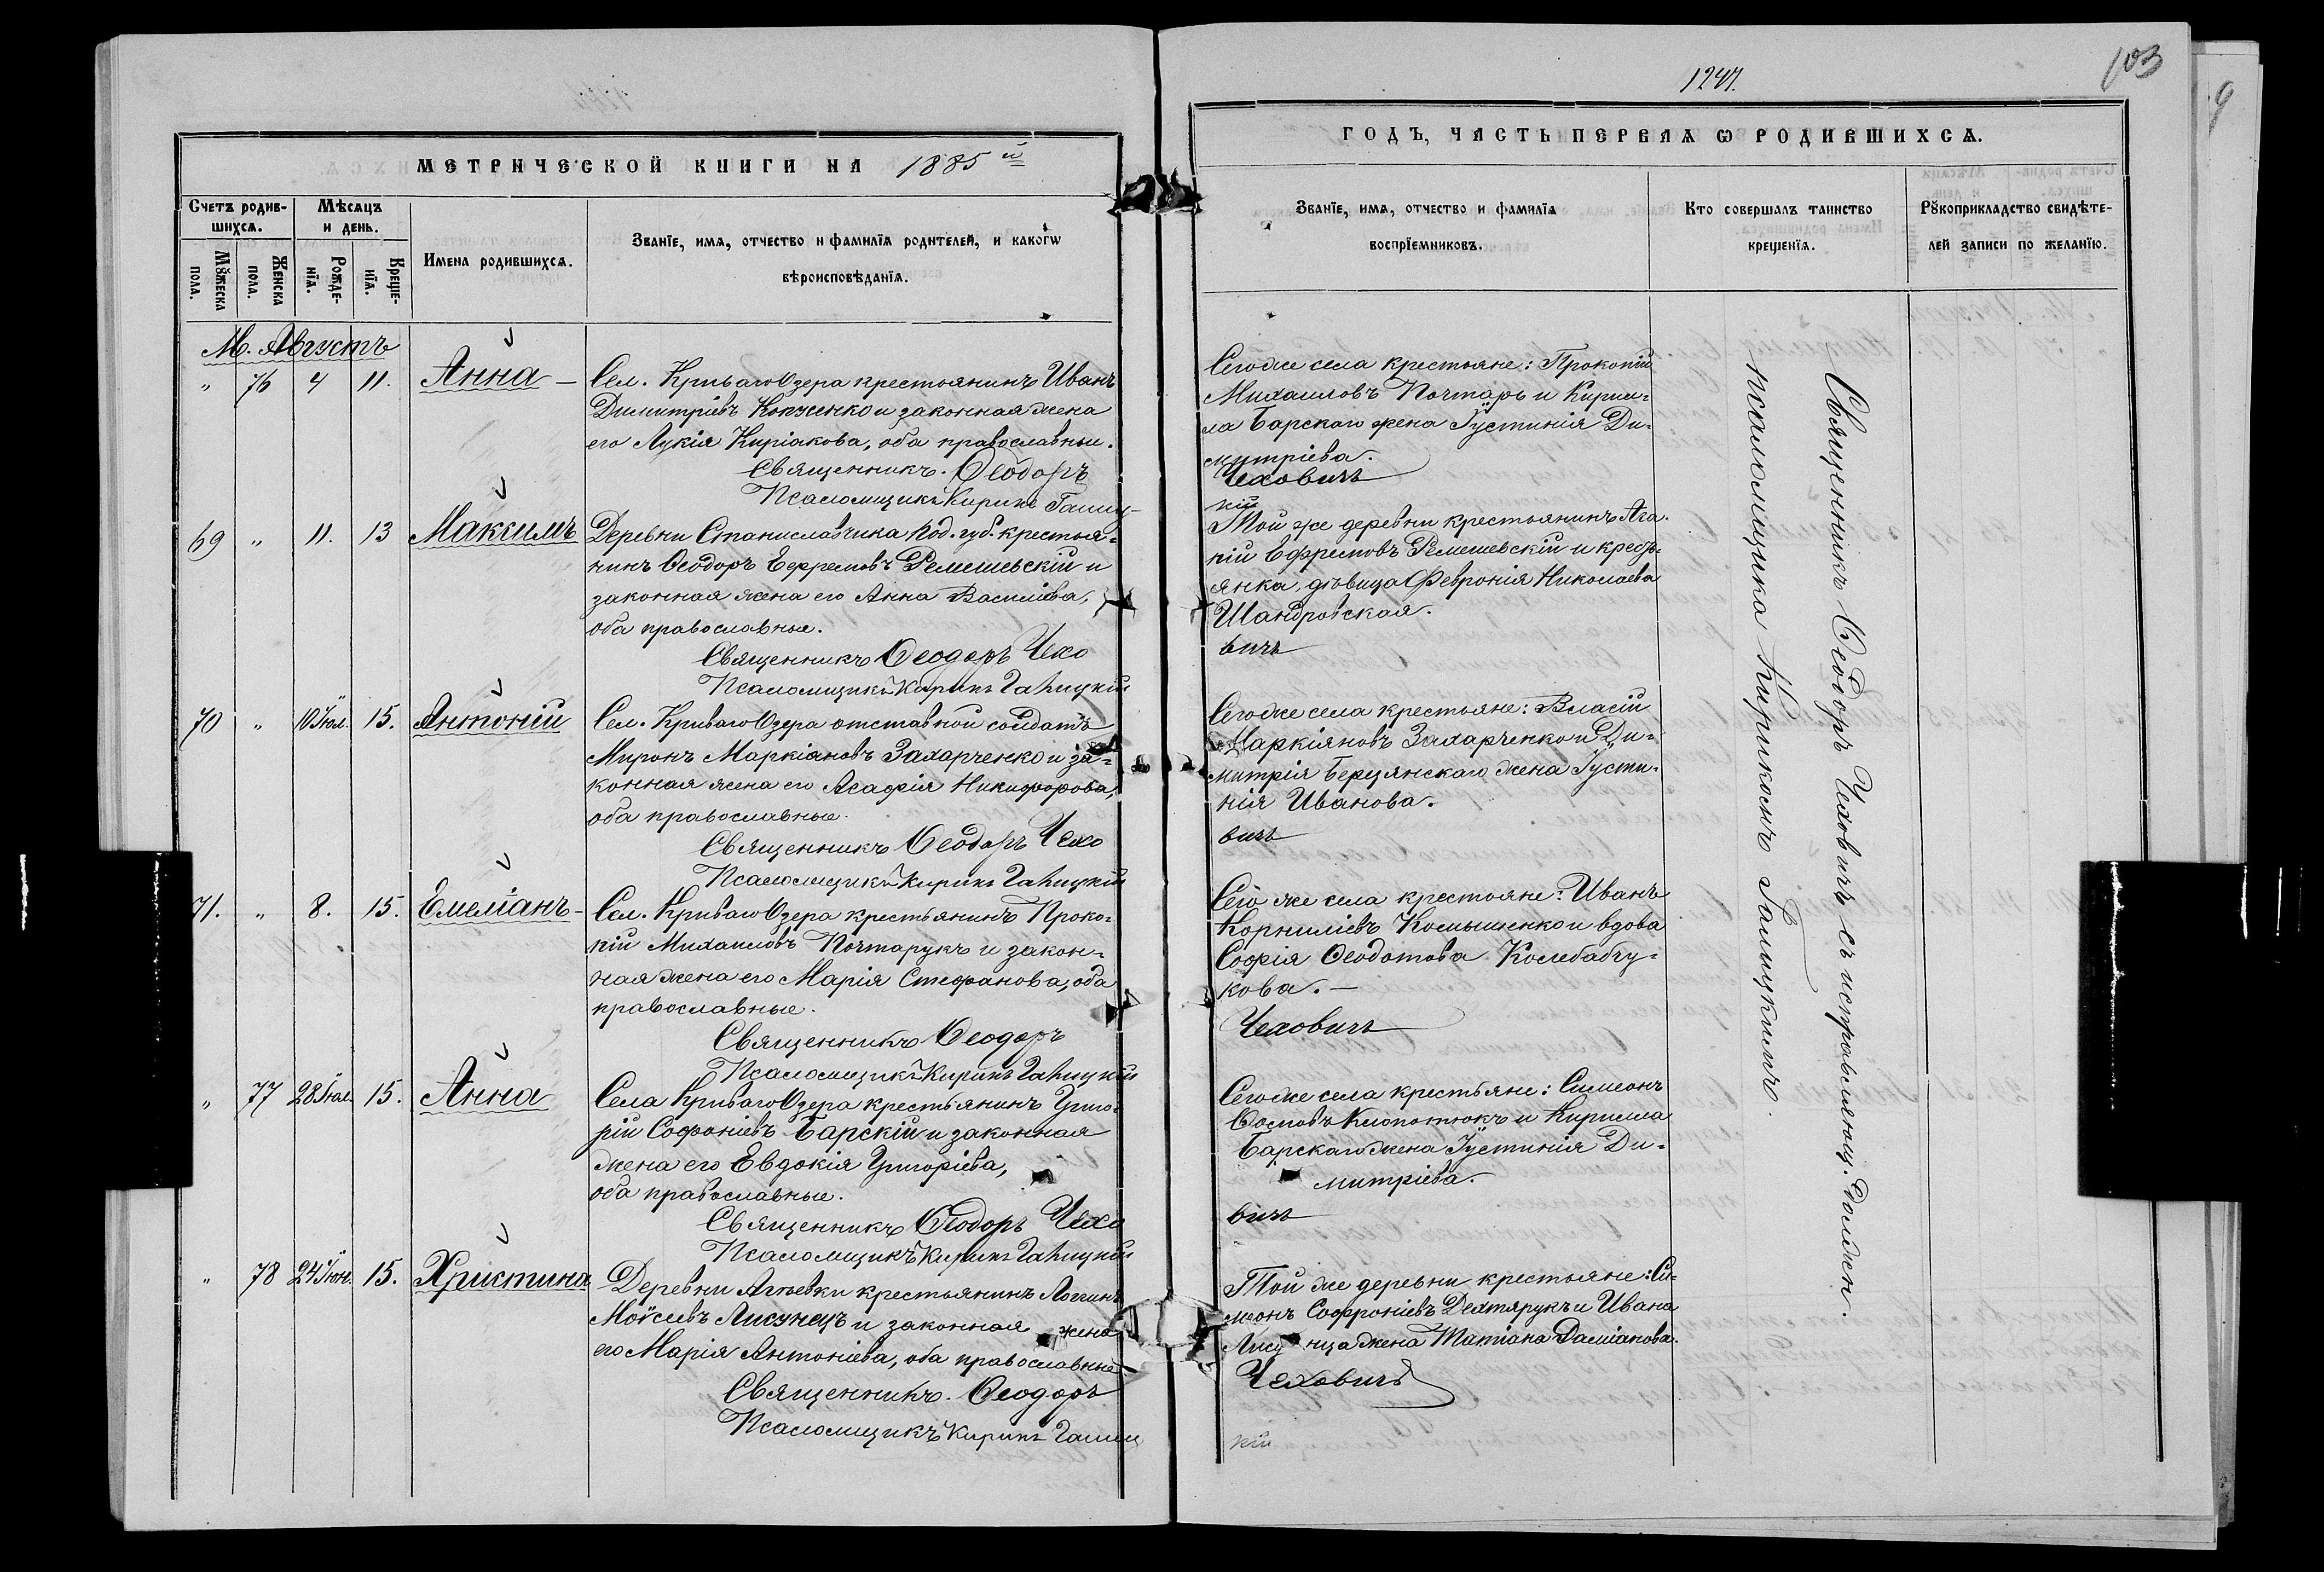 МЕТРИЧЕСКОЙ КНИГИ НА 1885 й
Счетъ родив-
шихсѧ.
Мѣсѧцъ
и день.
Имена родившихсѧ.
Званїе, имѧ, отчество и фамилїѧ родителей, и какогѡ
вѣроисповѣданїѧ.
Мꙋжеска
пола.
Женска
пола.
Рожде-
нїѧ.
Креще-
нїѧ.
М. Августъ
" 76 4 11. Анна –
Сел. Криваго Озера крестьянинъ Иванъ
Димитріевъ и законная жена
его Лукія Киріакова, оба православные.
Священникъ. Ѳеодоръ
Псаломщикъ Кирикъ Галиц-
69 " 11. 13 Максимъ
Деревни Станиславчика Под. губ. крестья-
нинъ Ѳеодоръ Ефремовъ Ремешевскій и
законная жена его Анна Василіева,
оба православные.
Священникъ Ѳеодоръ Чехо
Псаломщикъ Кирикъ Галицкій
70 " 10 Іюл. 15. Антоній
Сел. Криваго Озера отставной солдатъ
Миронъ Маркіановъ Захарченко и за-
конная жена его Агафія Никифорова,
оба православные.
Священникъ Ѳеодоръ Чехо
Псаломщикъ Кирикъ Галицкій
71. " 8. 15. Емеліанъ –
Сел. Криваго Озера крестьянинъ Проко-
пій Михаиловъ Почтарукъ и закон-
ная жена его Марія Стефанова, оба
православные.
Священникъ Ѳеодоръ
Псаломщикъ Кирикъ Галицкій
" 77 28 Іюл. 15. Анна
Села Криваго Озера крестьянинъ Григо-
рій Софоніевъ Барскій и законная
жена его Евдокія Григоріева,
оба православные.
Священникъ Ѳеодоръ Чехо
Псаломщикъ Кирикъ Галицкій
" 78 24 Іюн. 15. Христина
Деревни крестьянинъ Логгинъ
Моѵсеевъ Лисунецъ и законная жена
его Марія Антоніева, оба православные
Священникъ. Ѳеодоръ
Псаломщикъ Кирикъ Галиц
1247.
103
9
ГОДЪ, ЧАСТЬ ПЕРВАѦ Ѡ РОДИВШИХСѦ.
Званїе, имѧ, отчество и фамилїѧ
воспрїемниковъ.
Кто совершалъ таинство
крещенїѧ.
Рꙋкоприкладство свидѣте-
лей записи по желанїю.
Сего же села крестьяне: Прокопій
Михаиловъ Почтарь и Кирил-
ла Барскаго жена Іустинія Ди-
митріева.
Чеховичъ
кій
Той же деревни крестьянинъ Ага-
пій Ефремовъ Ремешевскій и кресть-
янка, дѣвица Февронія Николаева
Шандровская.
вичъ
Сего же села крестьяне: Власій
Маркіяновъ Захарченко и Ди-
митрія Берцянскаго жена Іусти-
нія Иванова.
вичъ
Сего же села крестьяне: Иванъ
Корниліевъ Комышенко и вдова
Софія Ѳеодотова Колебабчу-
кова. –
Чеховичъ
Сего же села крестьяне: Симеонъ
Клопотюкъ и Кирилла
Барскаго жена Іустинія Ди-
митріева.
вичъ
Той же деревни крестьяне: Си-
меонъ Софроніевъ Дехтярукъ и Ивана
Лису нца жена Татіана Даміанова.
Чеховичъ
кій
Священникъ Ѳеодоръ Чеховичъ съ исправляющ. должн.
псаломщика Кирикомъ Галицкимъ.